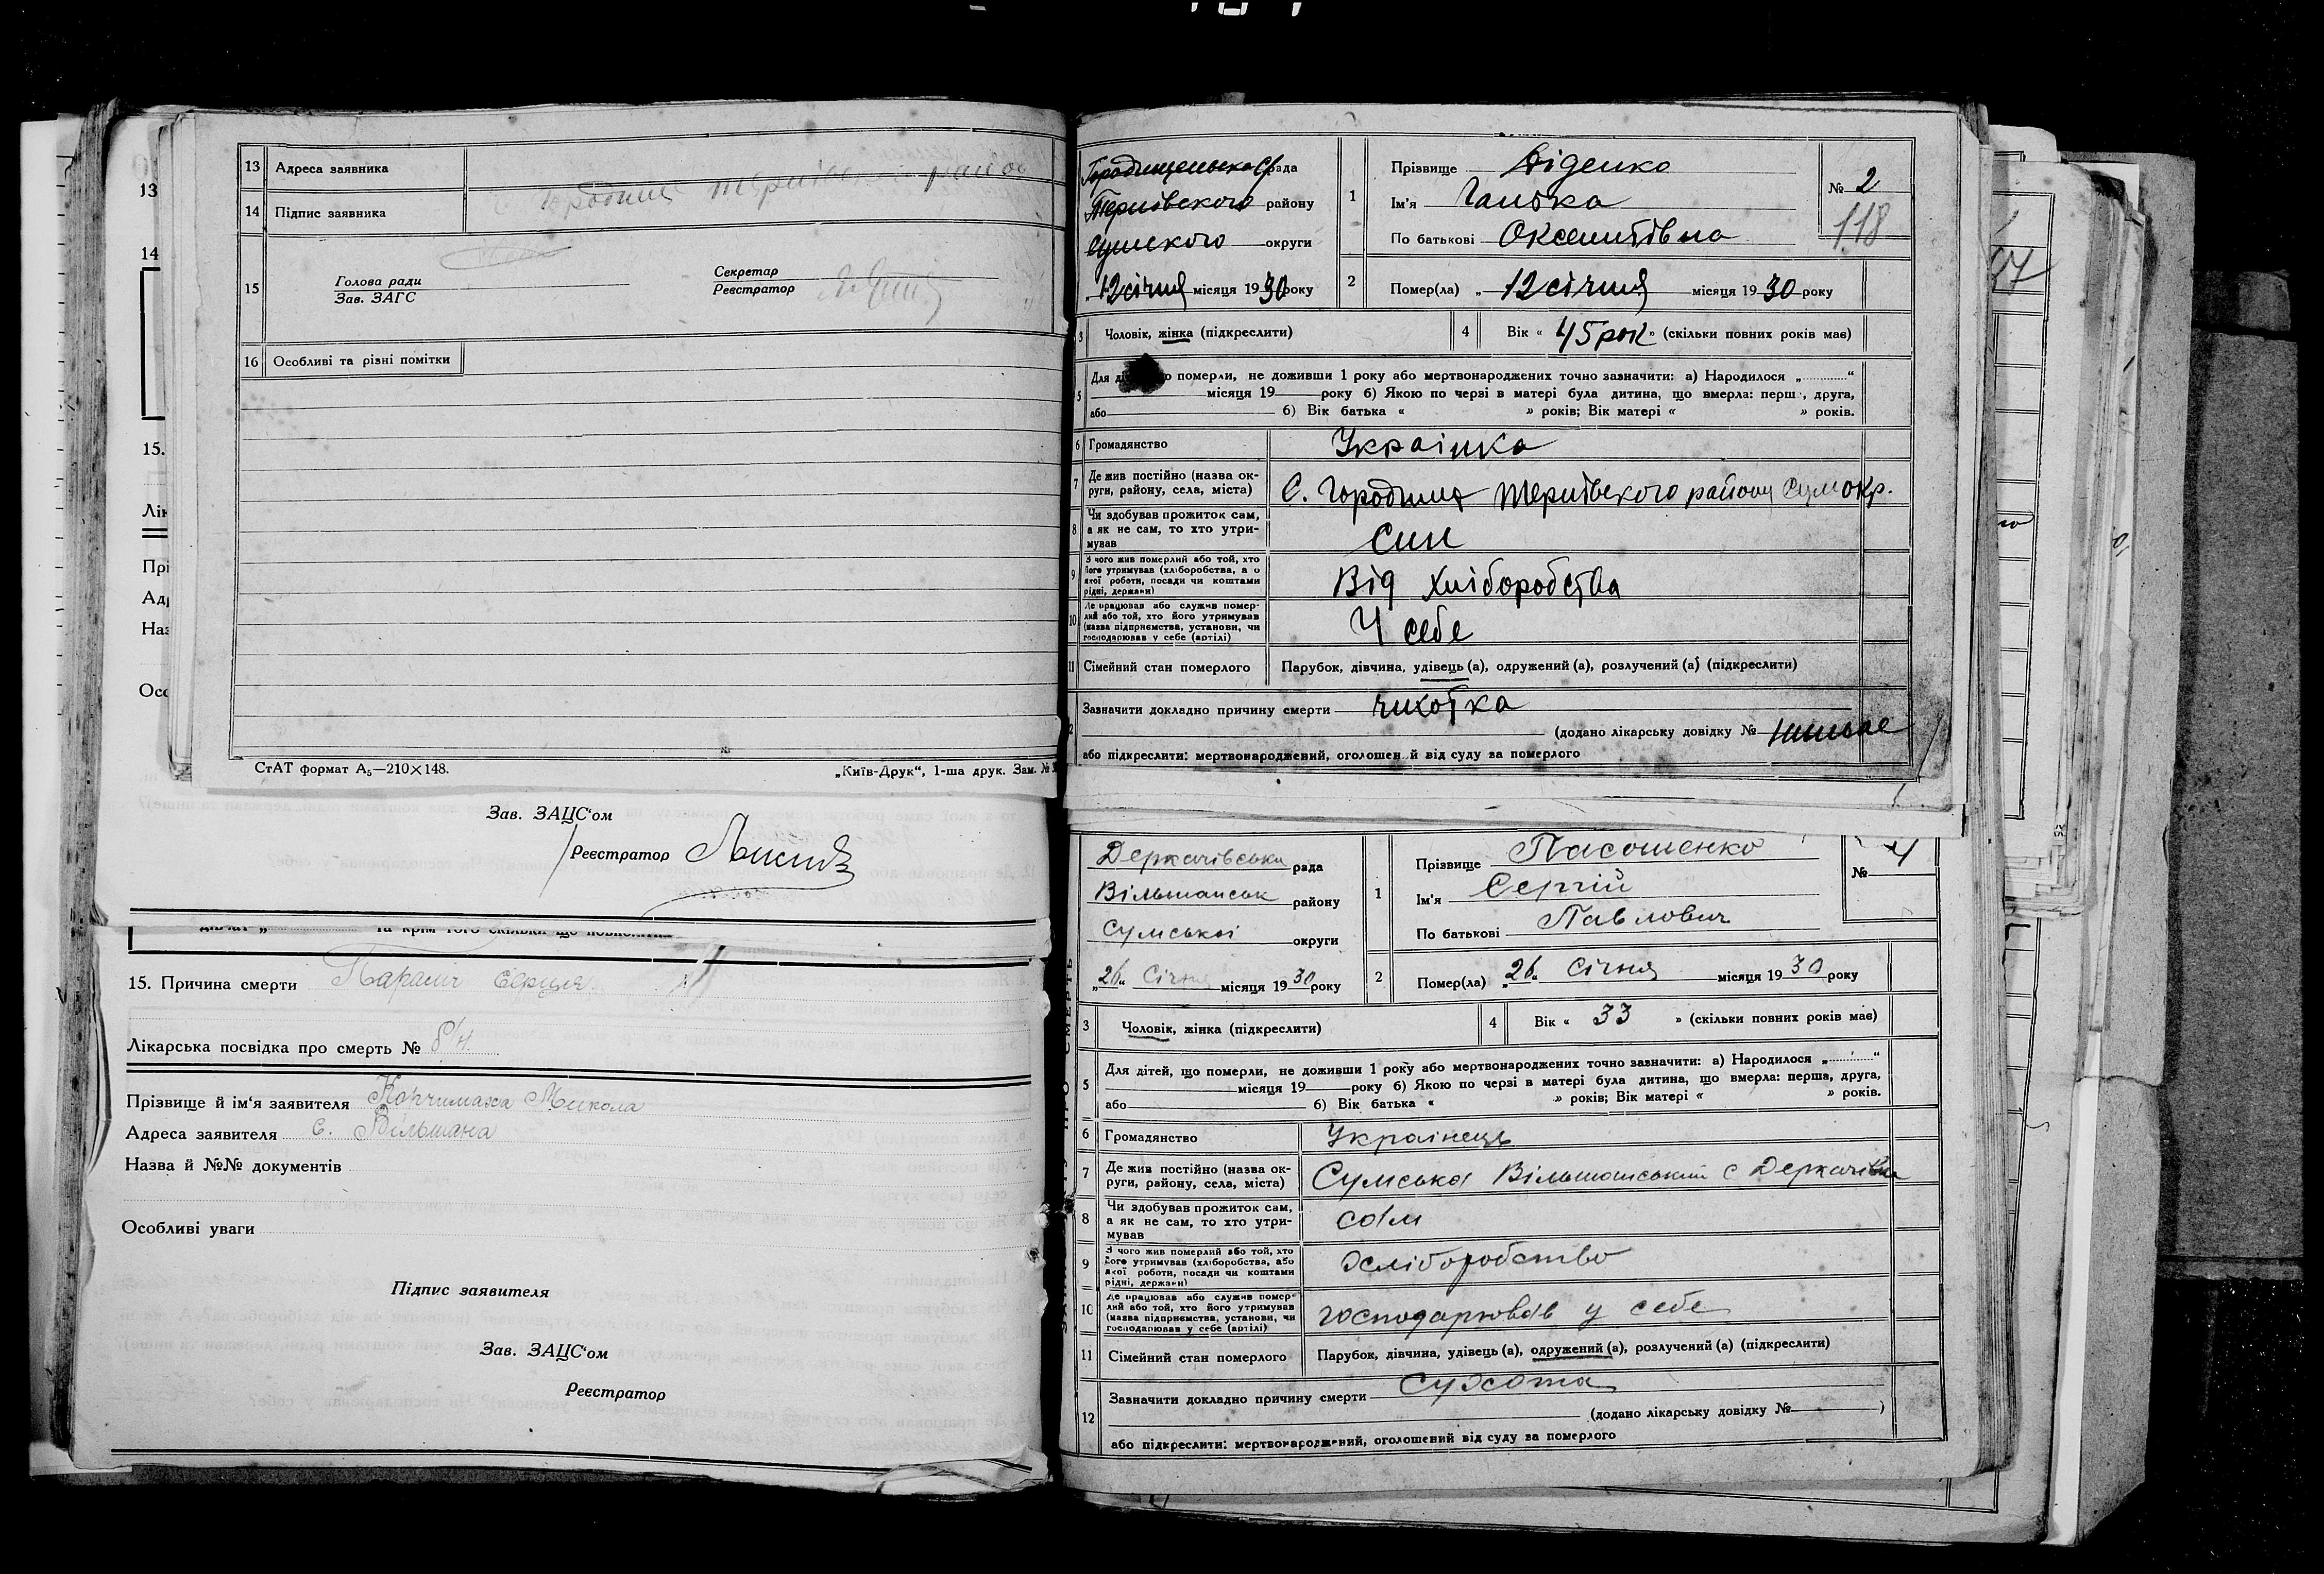 13 Адреса заявника
14 Підпис заявника
15 Голова ради
Зав. ЗАГС
Секретар
Реєстратор
16 Особливі та різні помітки
СтАТ формат А₅—210×148.
„Київ-Друк“, 1-ша друк. Зам. №
13
14
15.
Зав. ЗАЦС‘ом
Реєстратор
15. Причина смерти Параліч серця
Лікарська посвідка про смерть № б/н.
Прізвище й ім‘я заявителя Микола
Адреса заявителя с. Вільшана
Назва й №№ документів
Особливі уваги
Підпис заявителя
Зав. ЗАЦС‘ом
Реєстратор
рада
Тернівського району
Сумского округи
„12 січня місяця 1930 року
1 Прізвище Діденко
Ім‘я Ганська
По батькові Оксентівна
№ 2
118
2 Помер(ла) „ 12 січня місяця 1930 року
3 Чоловік, жінка (підкреслити)
4 Вік « 45 рок » (скільки повних років має)
5 Для померли, не доживши 1 року або мертвонароджених точно зазначити: а) Народилося „ “
місяця 19 року б) Якою по черзі в матері була дитина, що вмерла: перш , друга,
або б) Вік батька « » років; Вік матері « » років.
6 Громадянство Українка
7 Де жив постійно (назва ок-
руги, району, села, міста) С. Городище Тернівського району Сум окр.
8 Чи здобував прожиток сам,
а як не сам, то хто утри-
мував Син
9 З чого жив померлий або той, хто
його утримував (хліборобства, а о
якої роботи, посади чи коштами
рідні, держави) Від хліборобства
10 Де працював або служив помер-
лий або той, хто його утримував
(назва підприємства, установи, чи
господарював у себе (артілі) У себе
11 Сімейний стан померлого Парубок, дівчина, удівець (а), одружений (а), розлучений (а) (підкреслити)
Зазначити докладно причину смерти чихотка
(додано лікарську довідку №
або підкреслити: мертвонароджений, оголошен й від суду за померлого
Деркачівська рада
Вільшанськ району
Сумської округи
„26“ Січня місяця 1930 року
1 Прізвище
Ім‘я Сергій
По батькові Павлович
№ 4
2 Помер(ла) „26“ Січня місяця 1930 року
3 Чоловік, жінка (підкреслити)
4 Вік « 33 » (скільки повних років має)
5 Для дітей, що померли, не доживши 1 року або мертвонароджених точно зазначити: а) Народилося „ “
місяця 19 року б) Якою по черзі в матері була дитина, що вмерла: перша, друга,
або б) Вік батька « » років; Вік матері « » років.
6 Громадянство Українець
7 Де жив постійно (назва ок-
руги, району, села, міста) Сумська Вільшанський с Деркачівка
8 Чи здобував прожиток сам,
а як не сам, то хто утри-
мував сам
9 З чого жив померлий або той, хто
його утримував (хліборобства, або
якої роботи, посади чи коштами
рідні, держави) хліборобство
10 Де працював або служив помер-
лий або той, хто його утримував
(назва підприємства, установи, чи
господарював у себе (артілі) господарював у себе
11 Сімейний стан померлого Парубок, дівчина, удівець (а), одружений (а), розлучений (а) (підкреслити)
12 Зазначити докладно причину смерти Сухота
(додано лікарську довідку № )
або підкреслити: мертвонароджений, оголошений від суду за померлого